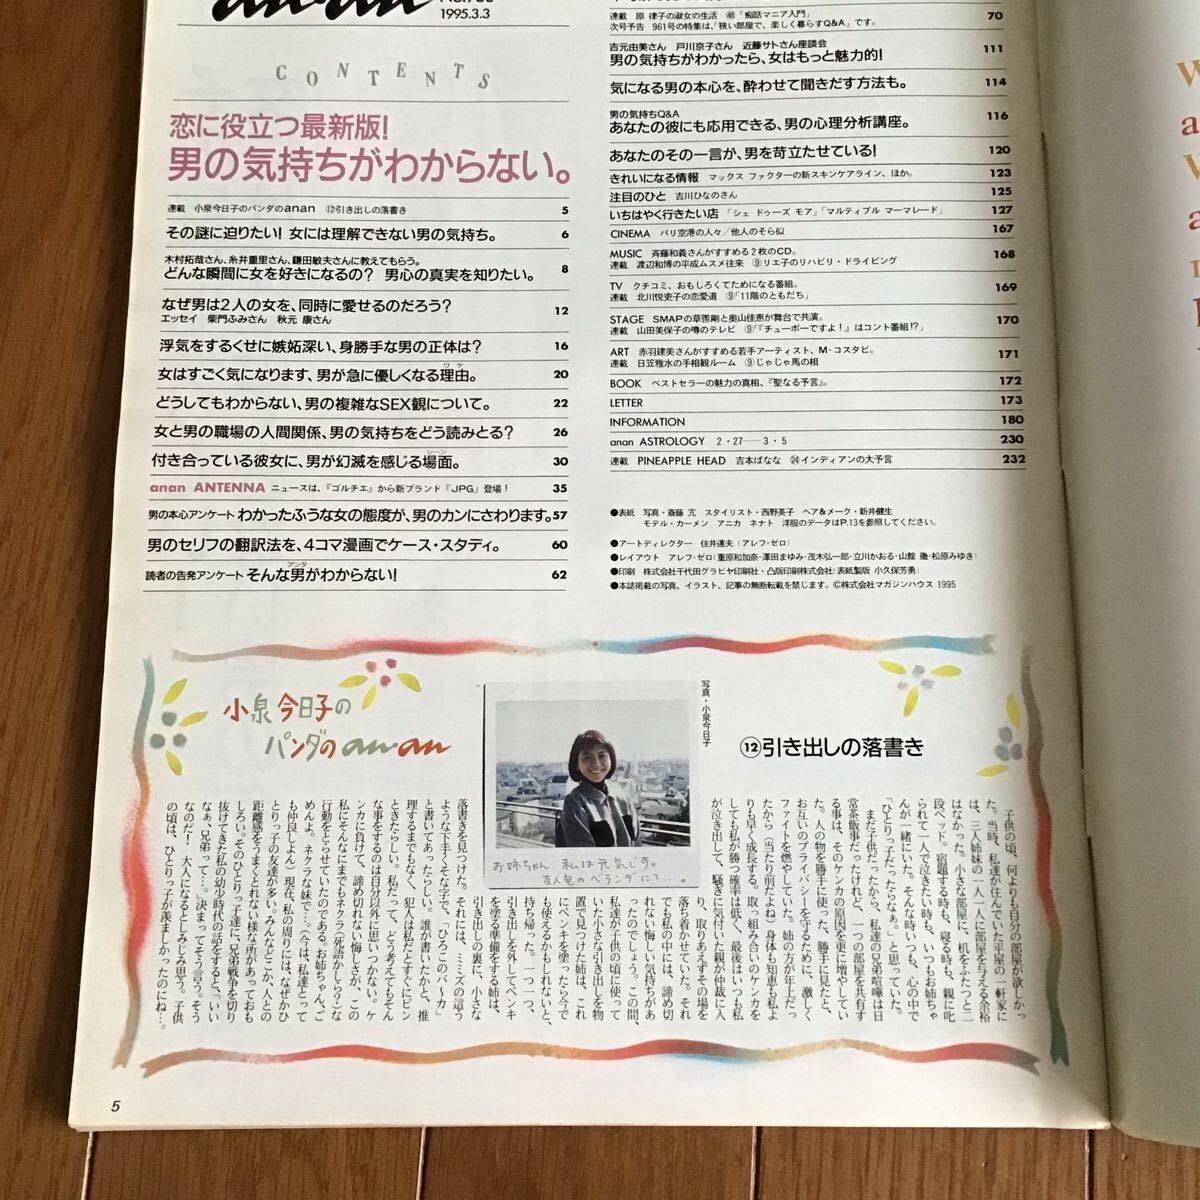 an·an
1995.3.3
CONTENTS
恋に役立つ最新版!
男の気持ちがわからない。
連載 小泉今日子のパンダのanan ⑫引き出しの落書き 5
その謎に迫りたい! 女には理解できない男の気持ち。 6
木村拓哉さん、糸井重里さん、鎌田敏夫さんに教えてもらう。
どんな瞬間に女を好きになるの? 男心の真実を知りたい。 8
なぜ男は2人の女を、同時に愛せるのだろう? 12
エッセイ 柴門ふみさん 秋元 康さん
浮気をするくせに嫉妬深い、身勝手な男の正体は? 16
女はすごく気になります、男が急に優しくなる理由。 20
ワケ
どうしてもわからない、男の複雑なSEX観について。 22
女と男の職場の人間関係、男の気持ちをどう読みとる? 26
付き合っている彼女に、男が幻滅を感じる場面。 30
シーン
anan ANTENNA ニュースは、『ゴルチエ』から新ブランド『JPG』登場! 35
男の本心アンケート わかったふうな女の態度が、男のカンにさわります。57
男のセリフの翻訳法を、4コマ漫画でケース・スタディ。 60
読者の告発アンケート そんな男がわからない! 62
アンタ
連載 原 律子の淑女の生活 ㊽「痴話マニア入門」 70
次号予告 961号の特集は、「狭い部屋で、楽しく暮らすQ&A」です。
吉元由美さん 戸川京子さん 近藤サトさん座談会 111
男の気持ちがわかったら、女はもっと魅力的!
気になる男の本心を、酔わせて聞きだす方法も。 114
男の気持ちQ&A 116
あなたの彼にも応用できる、男の心理分析講座。
あなたのその一言が、男を苛立たせている! 120
きれいになる情報 マックス ファクターの新スキンケアライン、ほか。 123
注目のひと 吉川ひなのさん 125
いちはやく行きたい店 「シェ ドゥーズ モア」「マルティプル マーマレード」 127
CINEMA パリ空港の人々/他人のそら似 167
MUSIC 斉藤和義さんがすすめる2枚のCD。 168
連載 渡辺和博の平成ムスメ往来 ⑨リエ子のリハビリ・ドライビング
TV クチコミ、おもしろくてためになる番組。 169
連載 北川悦吏子の恋愛道 ⑨「11階のともだち」
STAGE SMAPの草彅剛と奥山佳恵が舞台で共演。 170
連載 山田美保子の噂のテレビ ⑨『「チューボーですよ!」はコント番組!?』
ART 赤羽建美さんがすすめる若手アーティスト、M・コスタビ。 171
連載 日笠雅水の手相観ルーム ⑨じゃじゃ馬の相
BOOK ベストセラーの魅力の真相、『聖なる予言』。 172
LETTER 173
INFORMATION 180
anan ASTROLOGY 2・27―3・5 230
連載 PINEAPPLE HEAD 吉本ばなな ㉔インディアンの大予言 232
●表紙 写真・斎藤 亢 スタイリスト・西野英子 ヘア&メーク・新井健生
モデル・カーメン アニカ ネナト 洋服のデータはP.13を参照してください。
●アートディレクター 住井達夫(アレフ・ゼロ)
●レイアウト アレフ・ゼロ(重原和加奈・澤田まゆみ・茂木弘一郎・立川かおる・山館 徹・松原みゆき)
●印刷 株式会社千代田グラビヤ印刷社・凸版印刷株式会社(表紙製版 小久保芳勇)
●本誌掲載の写真、イラスト、記事の無断転載を禁じます。©株式会社マガジンハウス 1995
小泉今日子の
パンダのan·an
写真・小泉今日子
お姉ちゃん、私は元気です。
友人宅のベランダにて……。
⑫引き出しの落書き
子供の頃、何よりも自分の部屋が欲しかっ
た。当時、私達が住んでいた平屋の一軒家に
は、三人姉妹の一人一人に部屋を与える余裕
はなかった。小さな部屋に、机をふたつと二
段ベッド。宿題する時も、寝る時も、親に叱
られて一人で泣きたい時も、いつもお姉ちゃ
んが一緒にいた。そんな時いつも、心の中で
「ひとりっ子だったらなぁ。」と思っていた。
まだ子供だったから、私達の兄弟喧嘩は日
常茶飯事だったけれど、一つの部屋を共有す
る事は、そのケンカの原因を更に増やしてい
た。人の物を勝手に使った、勝手に見たと、
お互いのプライバシーを守るために、激しく
ファイトを燃やしていた。姉の方が年上だっ
たから(当たり前だよね)身体も知恵も私よ
りも早く成長する。取っ組み合いのケンカを
しても私が勝つ確率は低く、最後はいつも私
が泣き出して、騒ぎに気付いた親が仲裁に入
り、取りあえずその場を
落ち着かせていた。それ
でも私の中には、諦め切
れない悔しい気持ちがあ
ったのでしょう。この間、
私達が子供の頃に使って
いた小さな引き出しを物
置で見つけた姉は、これ
にペンキを塗ったら今で
も使えるかもしれないと、
持ち帰った。一つ一つ、
引き出しを外してペンキ
を塗る準備をする姉は、
引き出しの裏に、小さな
落書きを見つけた。それには、ミミズの這う
ような下手くそな字で、「ひろこのバーカ」
と書いてあったらしい。誰が書いたかと、推
理するまでもなく、犯人は私だとすぐにピン
ときたらしい。私だって、どう考えてもそん
な事をするのは自分以外に思いつかない。ケ
ンカに負けて、諦め切れない悔しさが、この
私にそんなにまでもネクラ(死語かしら?)な
行動をとらせていたのである。お姉ちゃん、ご
めんよ。ネクラな妹で…。(今は、私達とって
も仲良しよん)現在、私の周りには、なぜかひ
とりっ子の友達が多い。みんなどこか、人との
距離感をうまくとれない様な所があっておも
しろい。そのひとりっ子達に兄弟戦争を切り
抜けてきた私の幼少時代の話をすると、「いい
なぁ、兄弟って…。」決まってそう言う。そう
なのだ! 大人になるとしみじみ思う。子供
の頃は、ひとりっ子が羨ましかったのにね…。
5